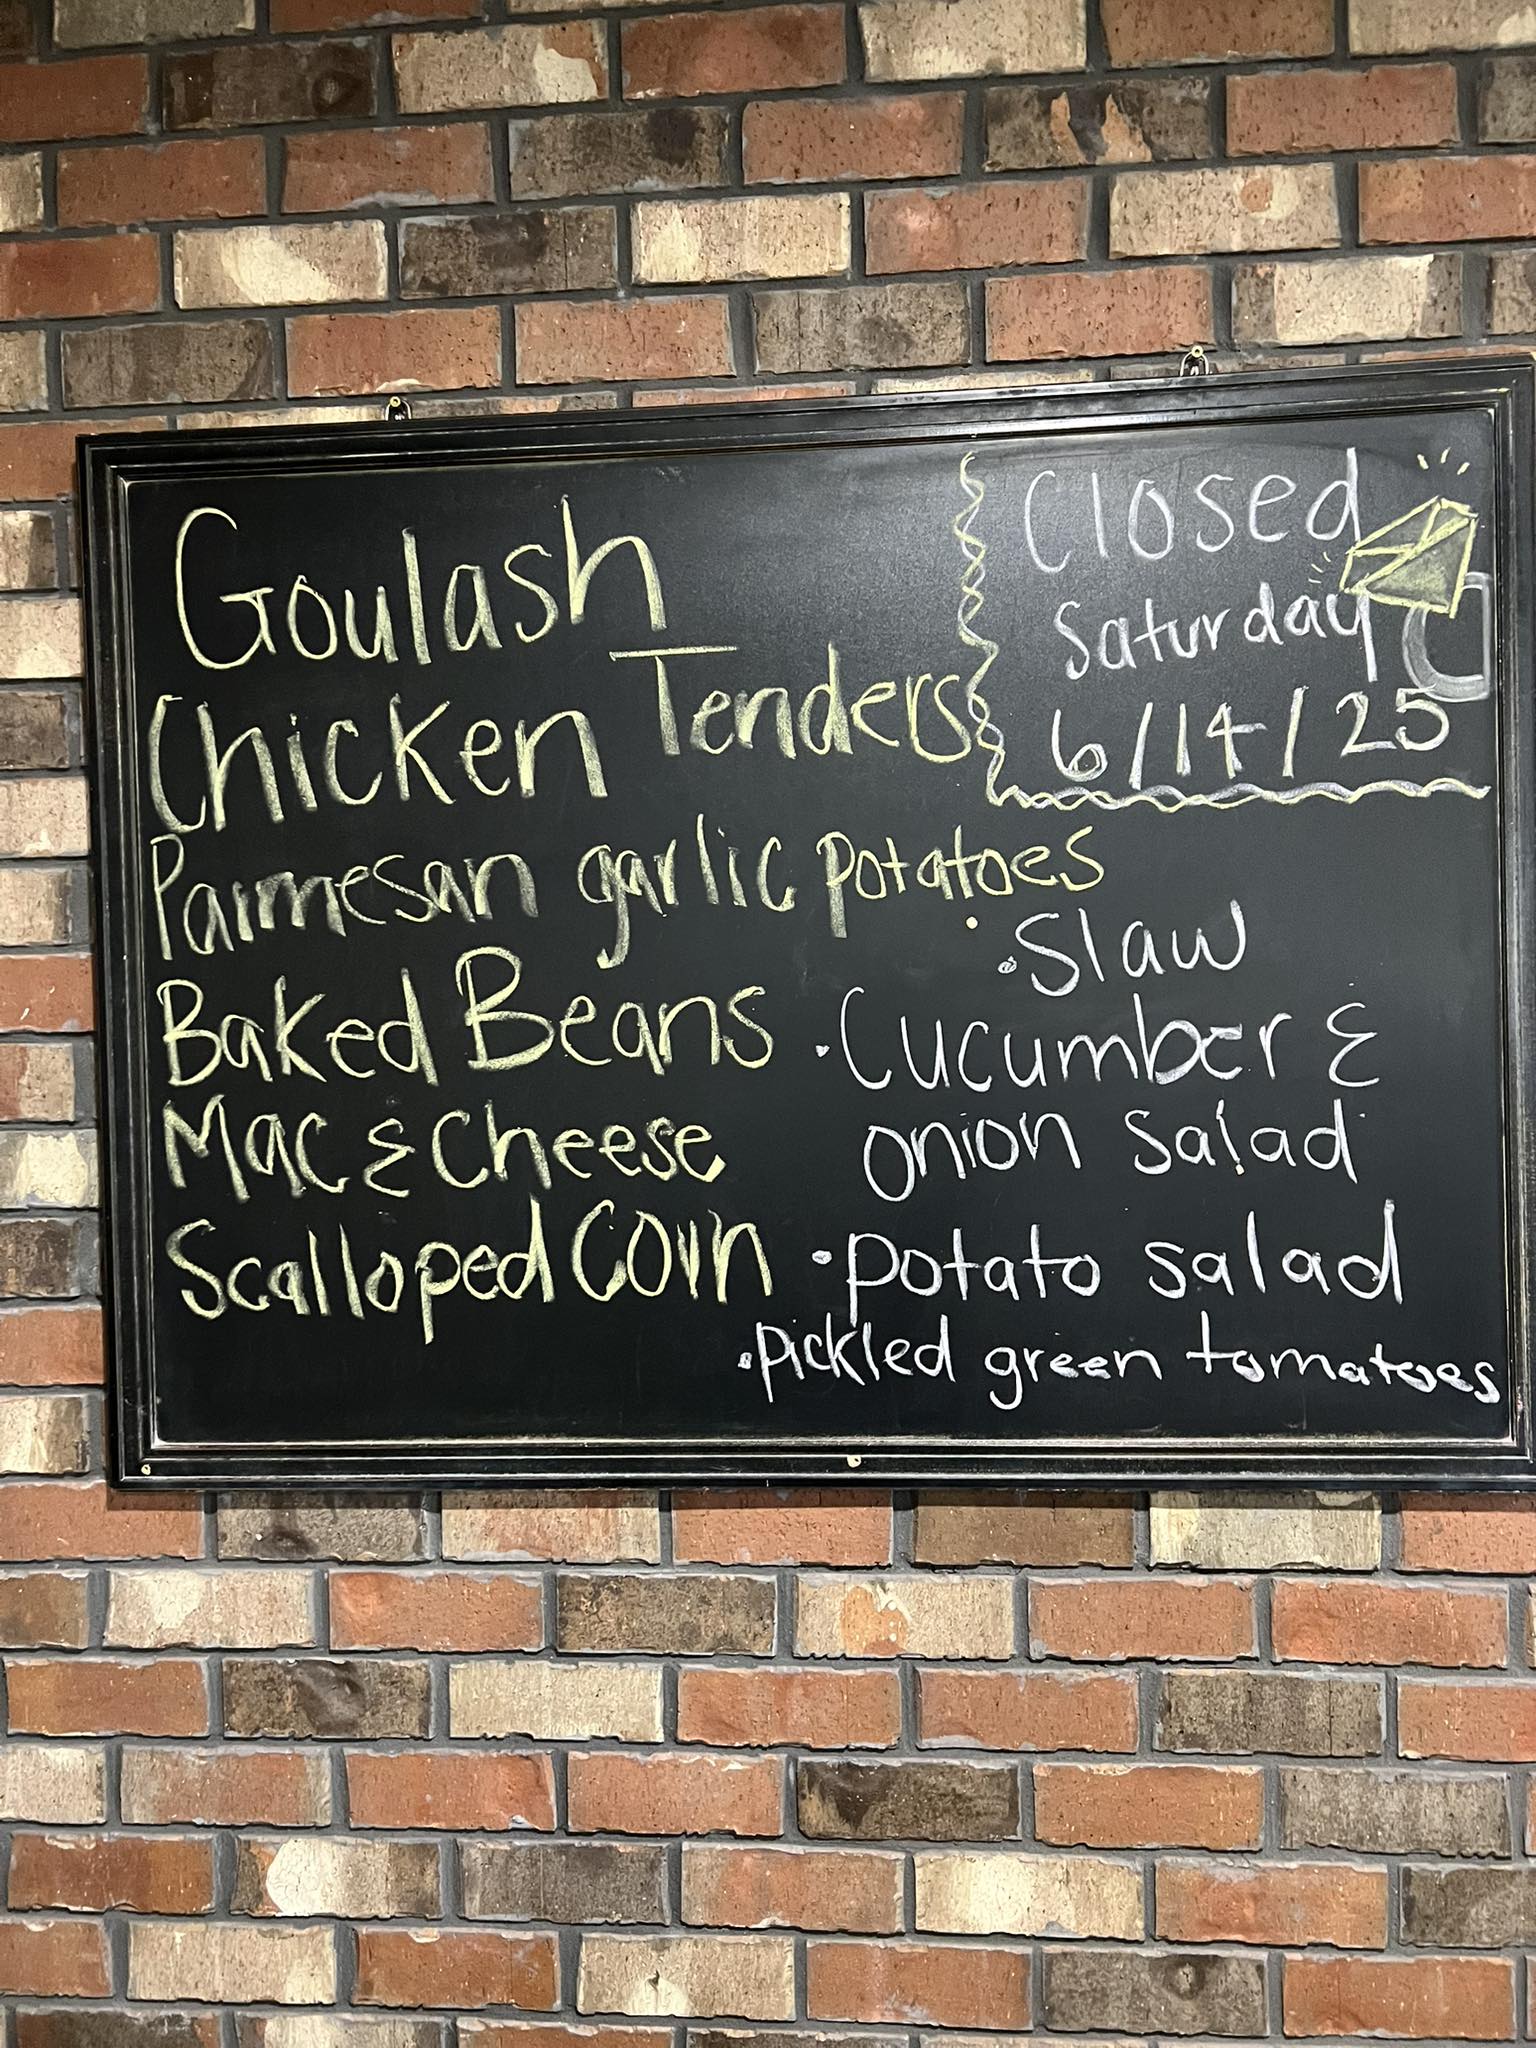 Goulash
Chicken Tenders
Parmesan garlic potatoes
Baked Beans
Mac & Cheese
Scalloped Corn
Closed
Saturday
6/14/25
• Slaw
• Cucumber &
onion salad
• potato salad
• pickled green tomatoes